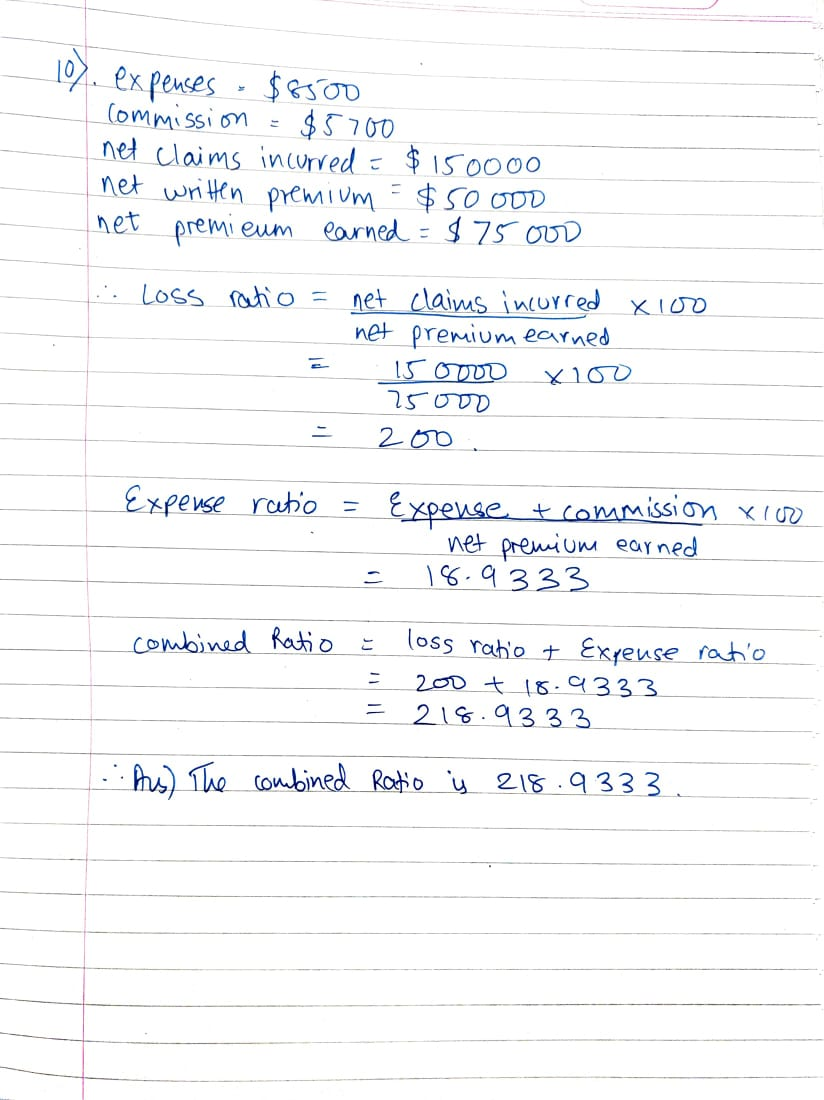 10). expenses = $8500
Commission = $5700
net claims incurred = $150000
net written premium = $50 000
net premieum earned = $75 000
∴ Loss ratio = net claims incurred x100
net premium earned
= 150000 x100
75000
= 200.
Expense ratio = Expense + commission x100
net premium earned
= 18.9333
combined Ratio = loss ratio + Expense ratio
= 200 + 18.9333
= 218.9333
∴ Ans) The combined Ratio is 218.9333.